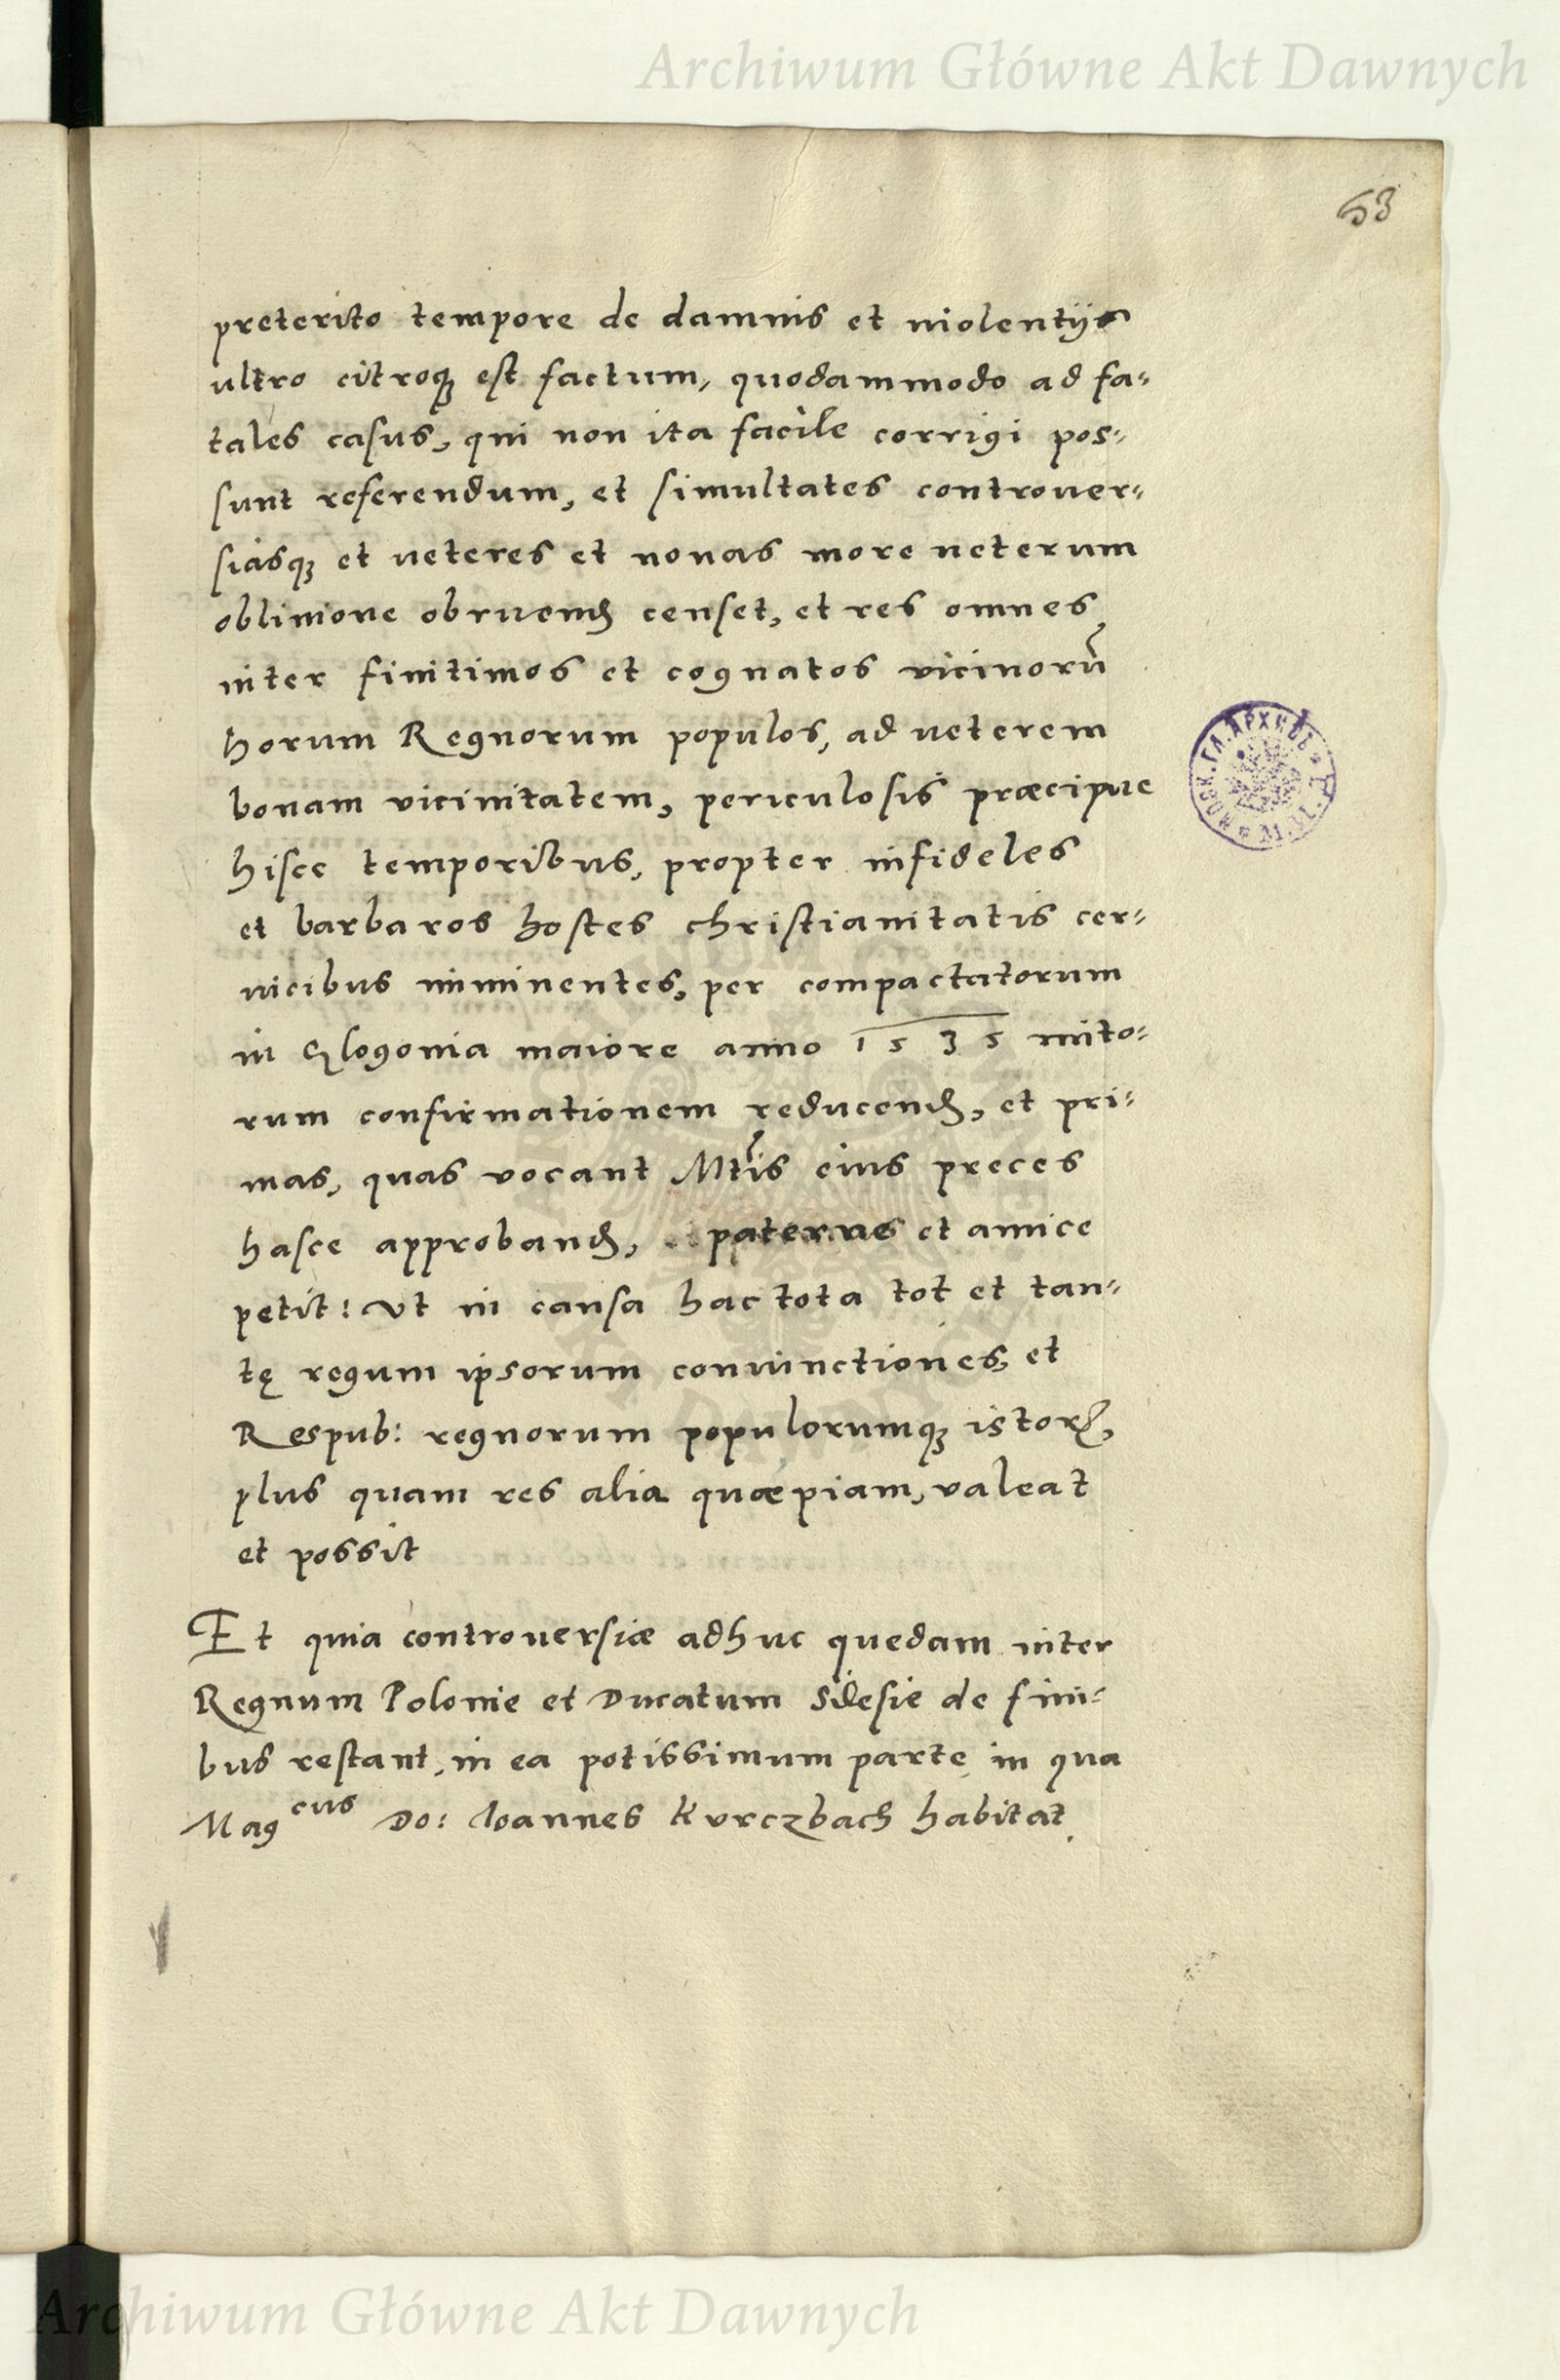 Archiwum Główne Akt Dawnych
53
preterito tempore de damnis et uiolentijs
ultro citroqꝫ est factum, quodammodo ad fa-
tales casus, qui non ita facile corrigi pos-
sunt referendum, et simultates controuer-
siasqꝫ et ueteres et nouas more ueterum
obliuione obruenđ censet, et res omnes
inter finitimos et cognatos vicinorū
horum Regnorum populos, ad ueterem
bonam vicinitatem, periculosis præcipue
hisce temporibus, propter infideles
et barbaros hostes christianitatis cer-
uicibus imminentes, per compactatorum
in Glogouia maiore anno 1535 inito-
rum confirmationem reducenđ, et pri-
mas, quas vocant Mtis eius preces
hasce approbanđ, paterne et amice
petit: Vt in causa hac tota tot et tan-
tę regum ipsorum coniunctiones, et
Respub: regnorum populorumqꝫ istorꝝ,
plus quam res alia quæpiam, valeat
et possit
Et quia controuersiæ adhuc quedam inter
Regnum Polonie et Ducatum Silesie de fini-
bus restant, in ea potissimum parte in qua
Magcus Do: Ioannes Kurczbach habitat
МОСК. ГЛ. АРХИВЪ
Archiwum Główne Akt Dawnych